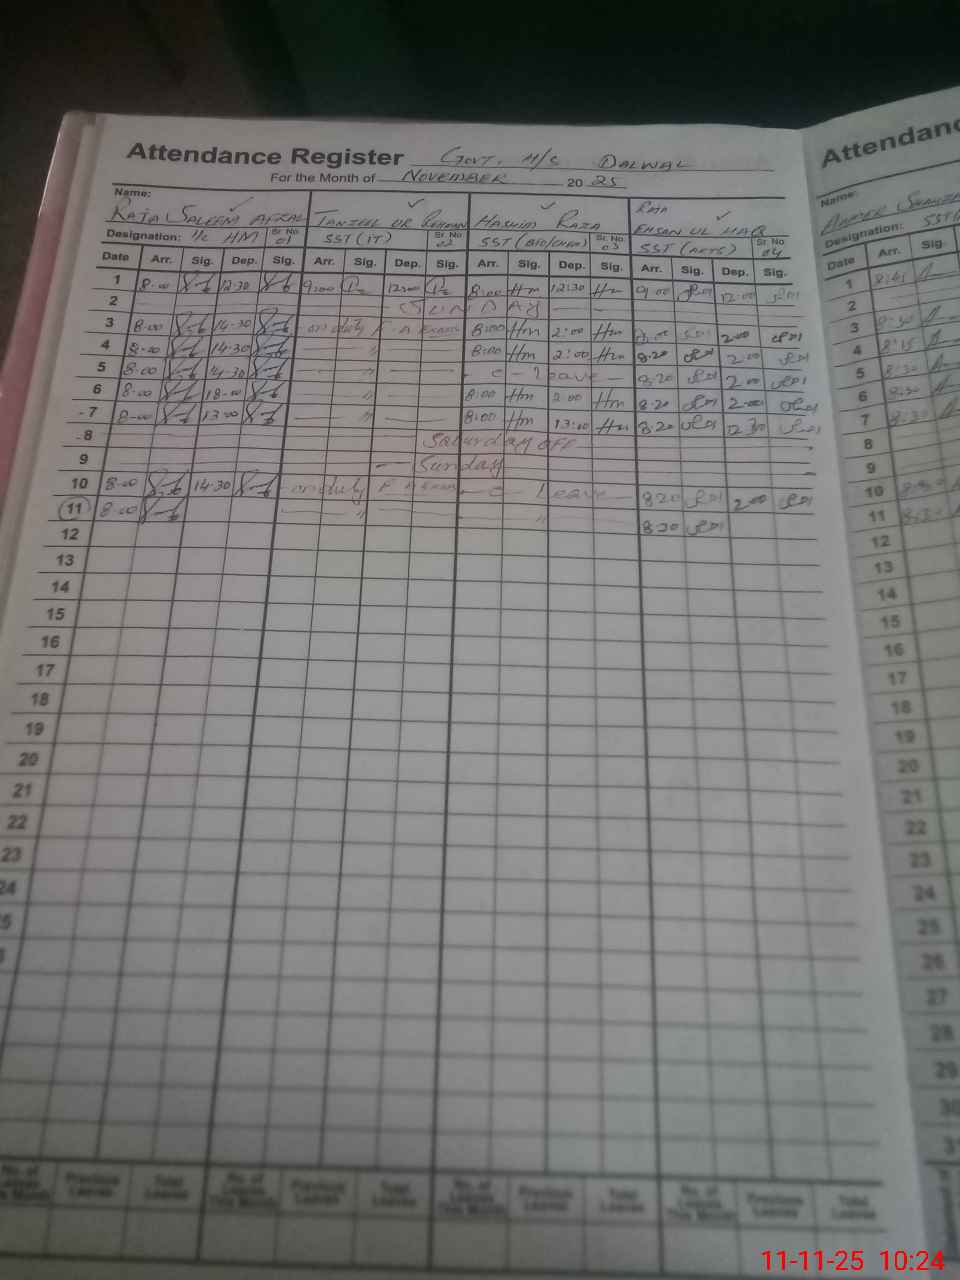 Attendance Register GOVT. H/S DALWAL
For the Month of NOVEMBER 20 25
Name:
RAJA SALEEM AFZAL TANZEEL UR REHMAN HASHIM RAZA RAJA EHSAN UL HAQ
Designation: I/C HM Sr. No. 01 SST (IT) Sr. No. 02 SST (BIO/CHEM) Sr. No. 03 SST (ARTS) Sr. No. 04
Date Arr. Sig. Dep. Sig. Arr. Sig. Dep. Sig. Arr. Sig. Dep. Sig. Arr. Sig. Dep. Sig.
1 8-00 12-30 9:00 12:00 8:00 Hm 12:30 Hm 9.00 12:00
2 SUNDAY
3 8-00 14-30 on duty 8:00 Hm 2:00 Hm 2.00
4 8-00 14-30 " 8:00 Hm 2:00 Hm 8.20 2.00
5 8-00 14-30 " C - leave 8.20 2.00
6 8-00 18-00 " 8:00 Hm 2:00 Hm 8.20 2.00
7 8-00 13-00 " 8:00 Hm 13:00 Hm 8.20 12 30
8 Saturday off
9 Sunday
10 8-00 14-30 on duty C Leave 8.20 2.00
11 8-00 " " 8.20
12
13
14
15
16
17
18
19
20
21
22
23
24
No. of Leaves This Month Previous Leaves Total Leaves No. of Leaves This Month Previous Leaves Total Leaves No. of Leaves This Month Previous Leaves Total Leaves No. of Leaves This Month Previous Leaves Total Leaves
Attendanc
Name:
Designation: SST
Date Arr. Sig.
1 8:45
2
3 8:30
4 8:15
5 8:30
6 8:30
7 8:30
8
9
10 8:30
11 8:30
12
13
14
15
16
17
18
19
20
21
22
23
24
25
26
27
28
29
30
11-11-25 10:24